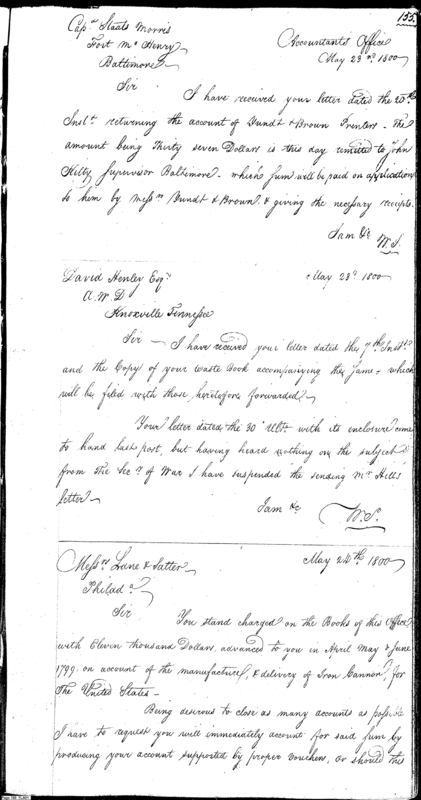 155.
Capn. Staats Morris
Fort Mc Henry
Baltimore
Accountants Office
May 23rd. 1800
Sir
I have received your letter dated the 20th.
Instt. returning the account of Yundt & Brown Printers. The
amount being Thirty seven Dollars is this day remitted to John
Kilty Supervisor Baltimore. which sum will be paid on application
to him by Messrs. Yundt & Brown & giving the necessary receipts.
I am &c.
W.S.
David Henley Esqr.
A. W. D
Knoxville Tennessee
May 23d. 1800
Sir — I have received your letter dated the 7th. Instt.
and the Copy of your Waste Book accompanying the same, which
will be filed with those heretofore forwarded.
Your letter dated the 30 Ulto. with its enclosure came
to hand last post, but having heard nothing on the subject
from the Secy. of War I have suspended the sending Mr. Hills
letter —
I am &c
W.S.
Messrs. Lane & Salter
Philada.
May 24th. 1800
Sir
You stand charged on the Books of this Office
with Eleven thousand Dollars, advanced to you in April May & June
1799. on account of the manufacture, & delivery of Iron Cannon, for
The United States —
Being desirous to close as many accounts as possible
I have to request you will immediately account for said sum by
producing your account supported by proper vouchers, or should this